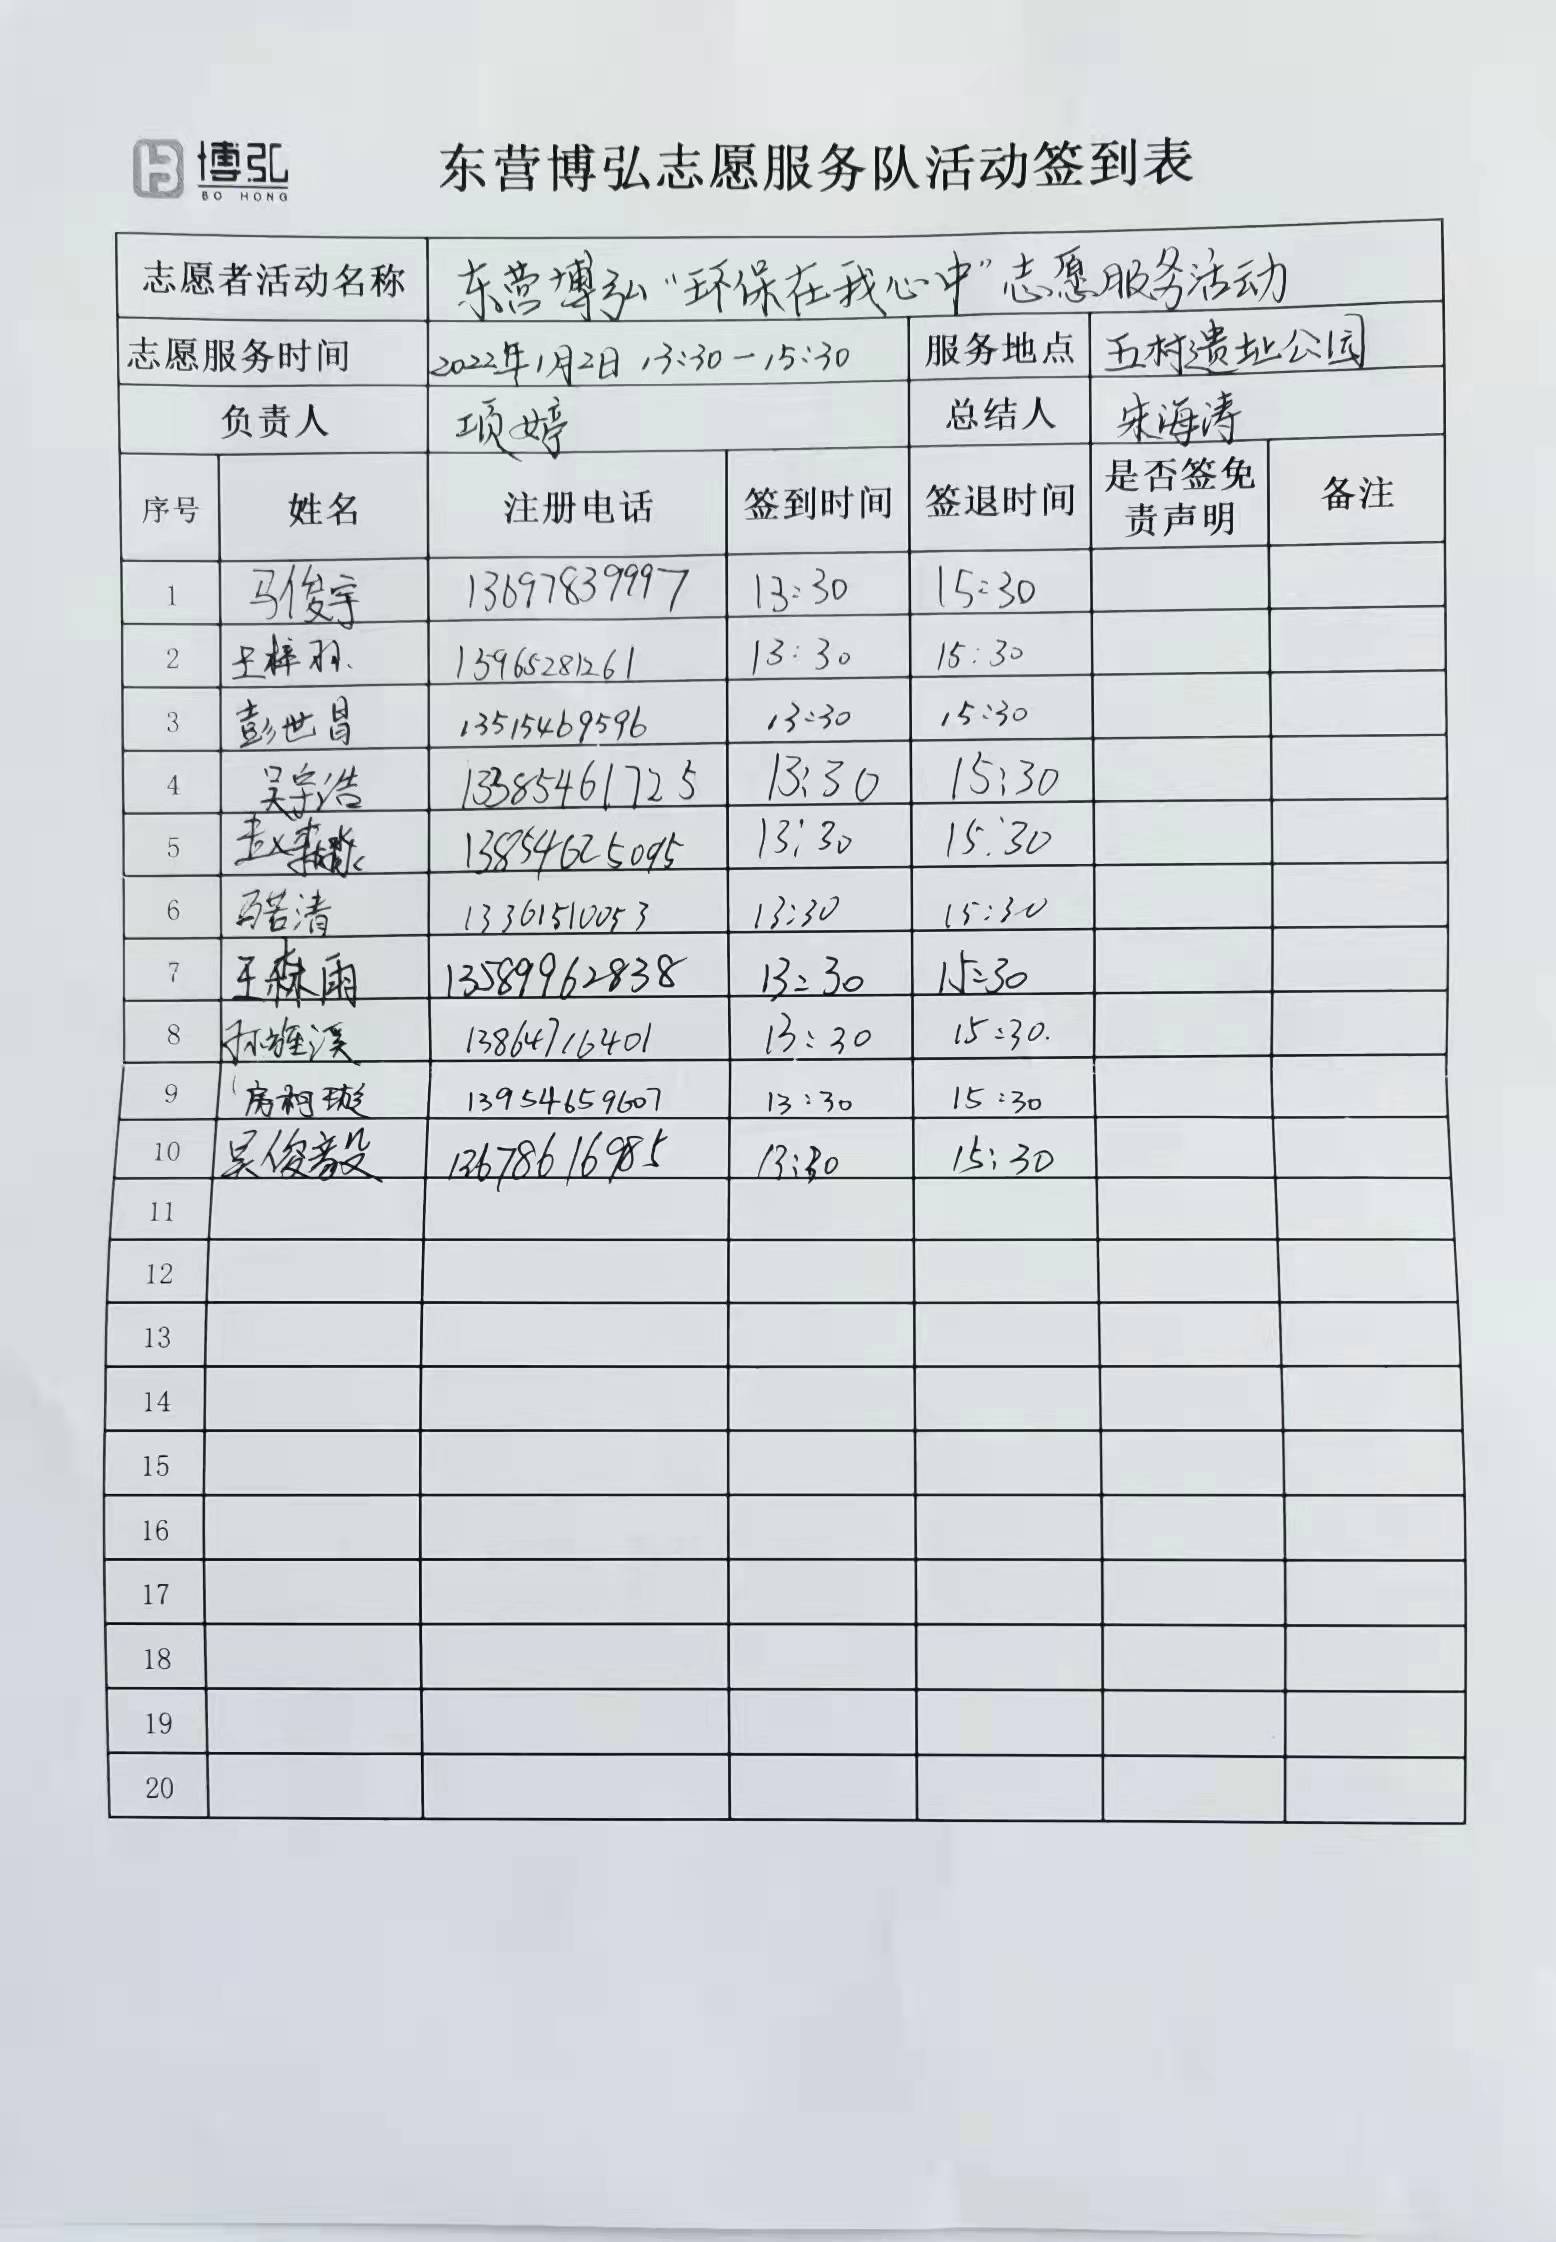 博弘
BO HONG
东营博弘志愿服务队活动签到表
志愿者活动名称 东营博弘“环保在我心中”志愿服务活动
志愿服务时间 2022年1月2日 13:30-15:30 服务地点 五村遗址公园
负责人 项婷 总结人 朱海涛
序号 姓名 注册电话 签到时间 签退时间 是否签免责声明 备注
1 马俊宇 13697839997 13:30 15:30
2 王梓羽 13965281261 13:30 15:30
3 彭世昌 13515469596 13:30 15:30
4 吴宇浩 13385461725 13:30 15:30
5 13854625095 13:30 15:30
6 马若清 13361510053 13:30 15:30
7 王森雨 13589962838 13:30 15:30
8 13864716401 13:30 15:30.
9 房柯璇 13954659607 13:30 15:30
10 吴俊毅 13678616985 13:30 15:30
11
12
13
14
15
16
17
18
19
20